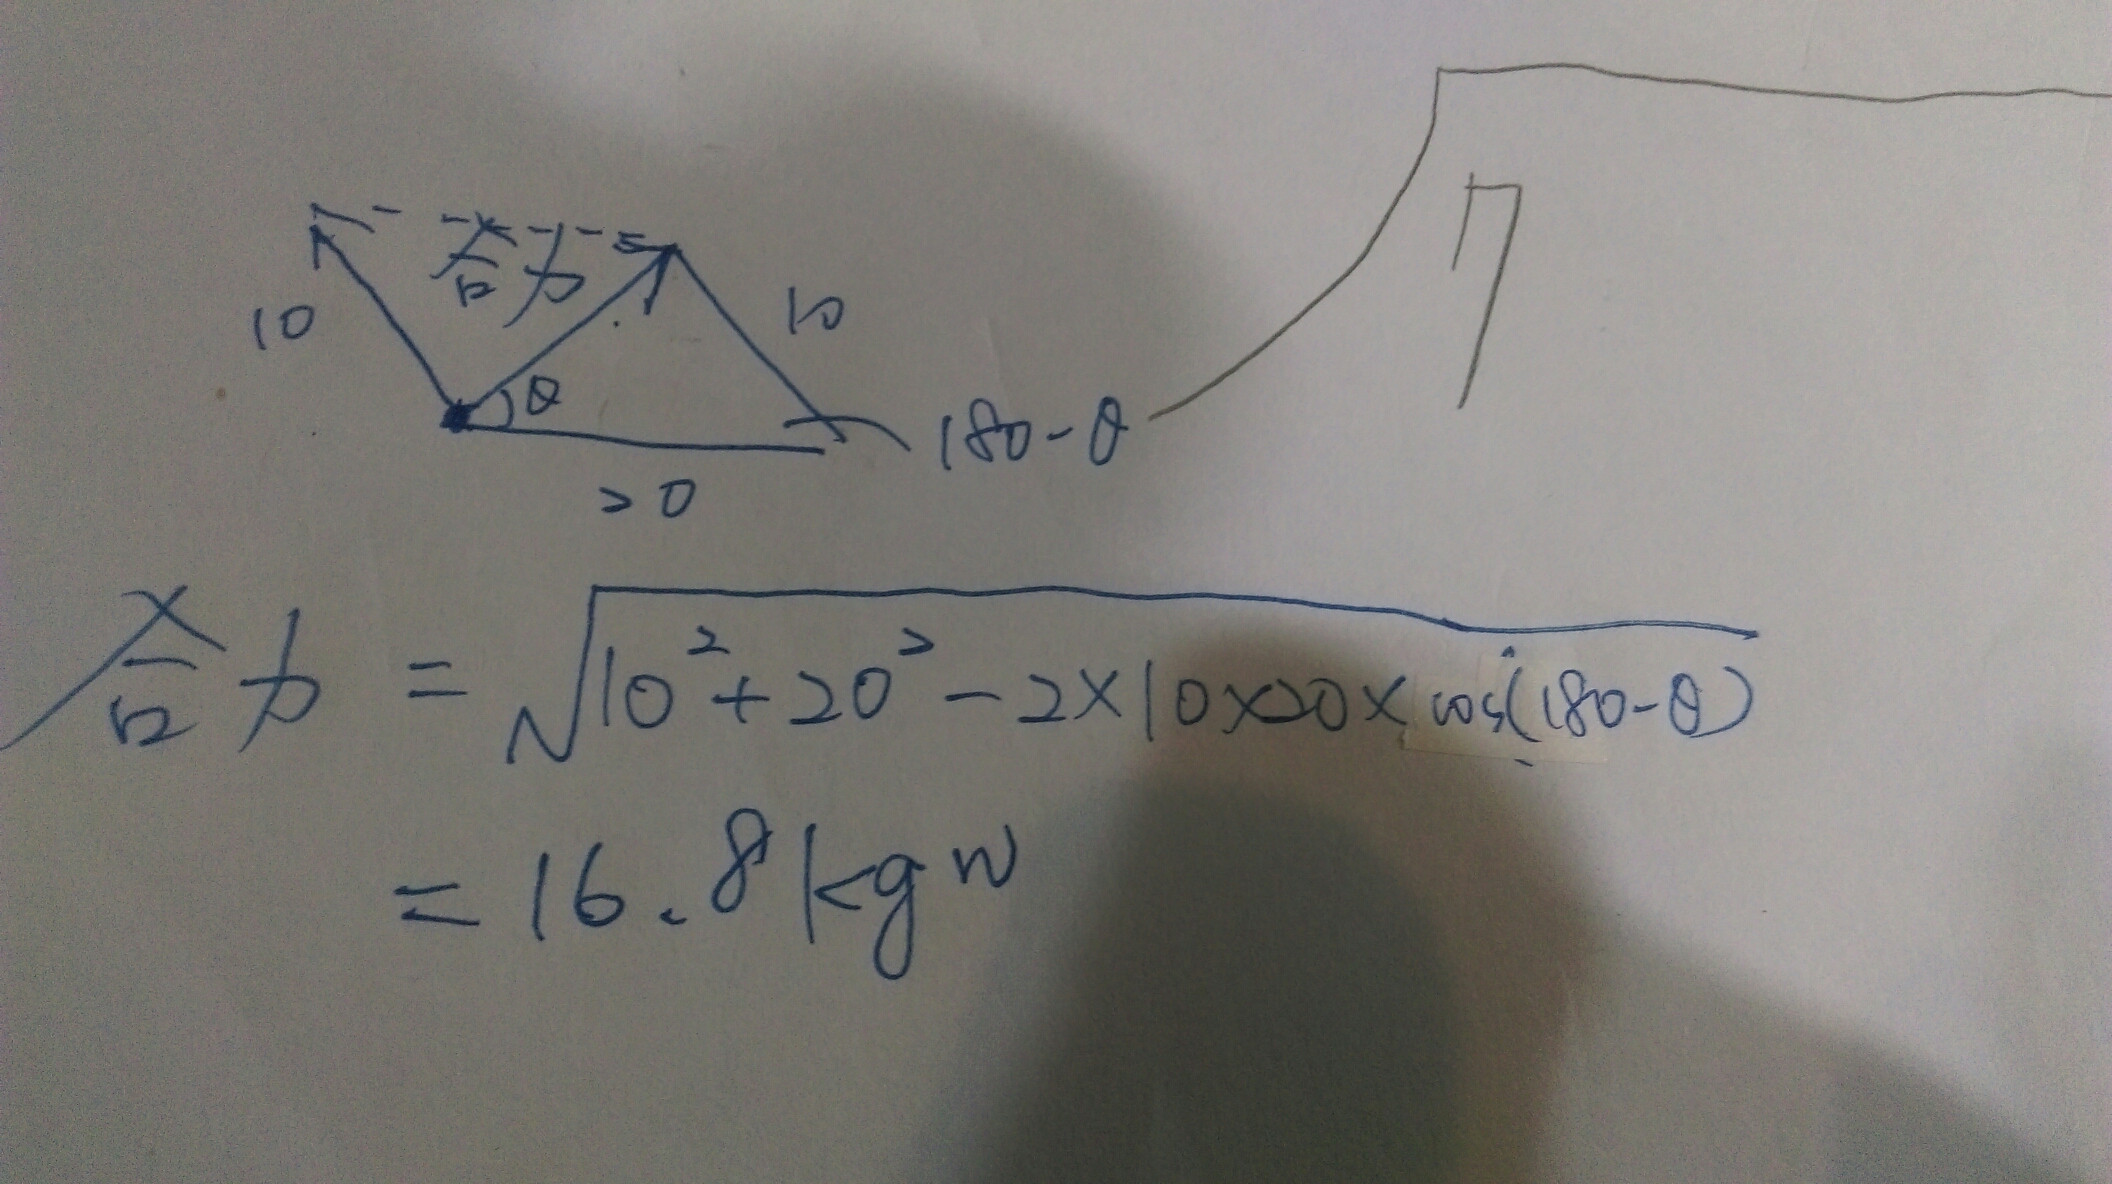 合力
10
10
θ
180-θ
20
合力 = √10²+20²-2×10×20×cos(180-θ)
= 16.8kgw